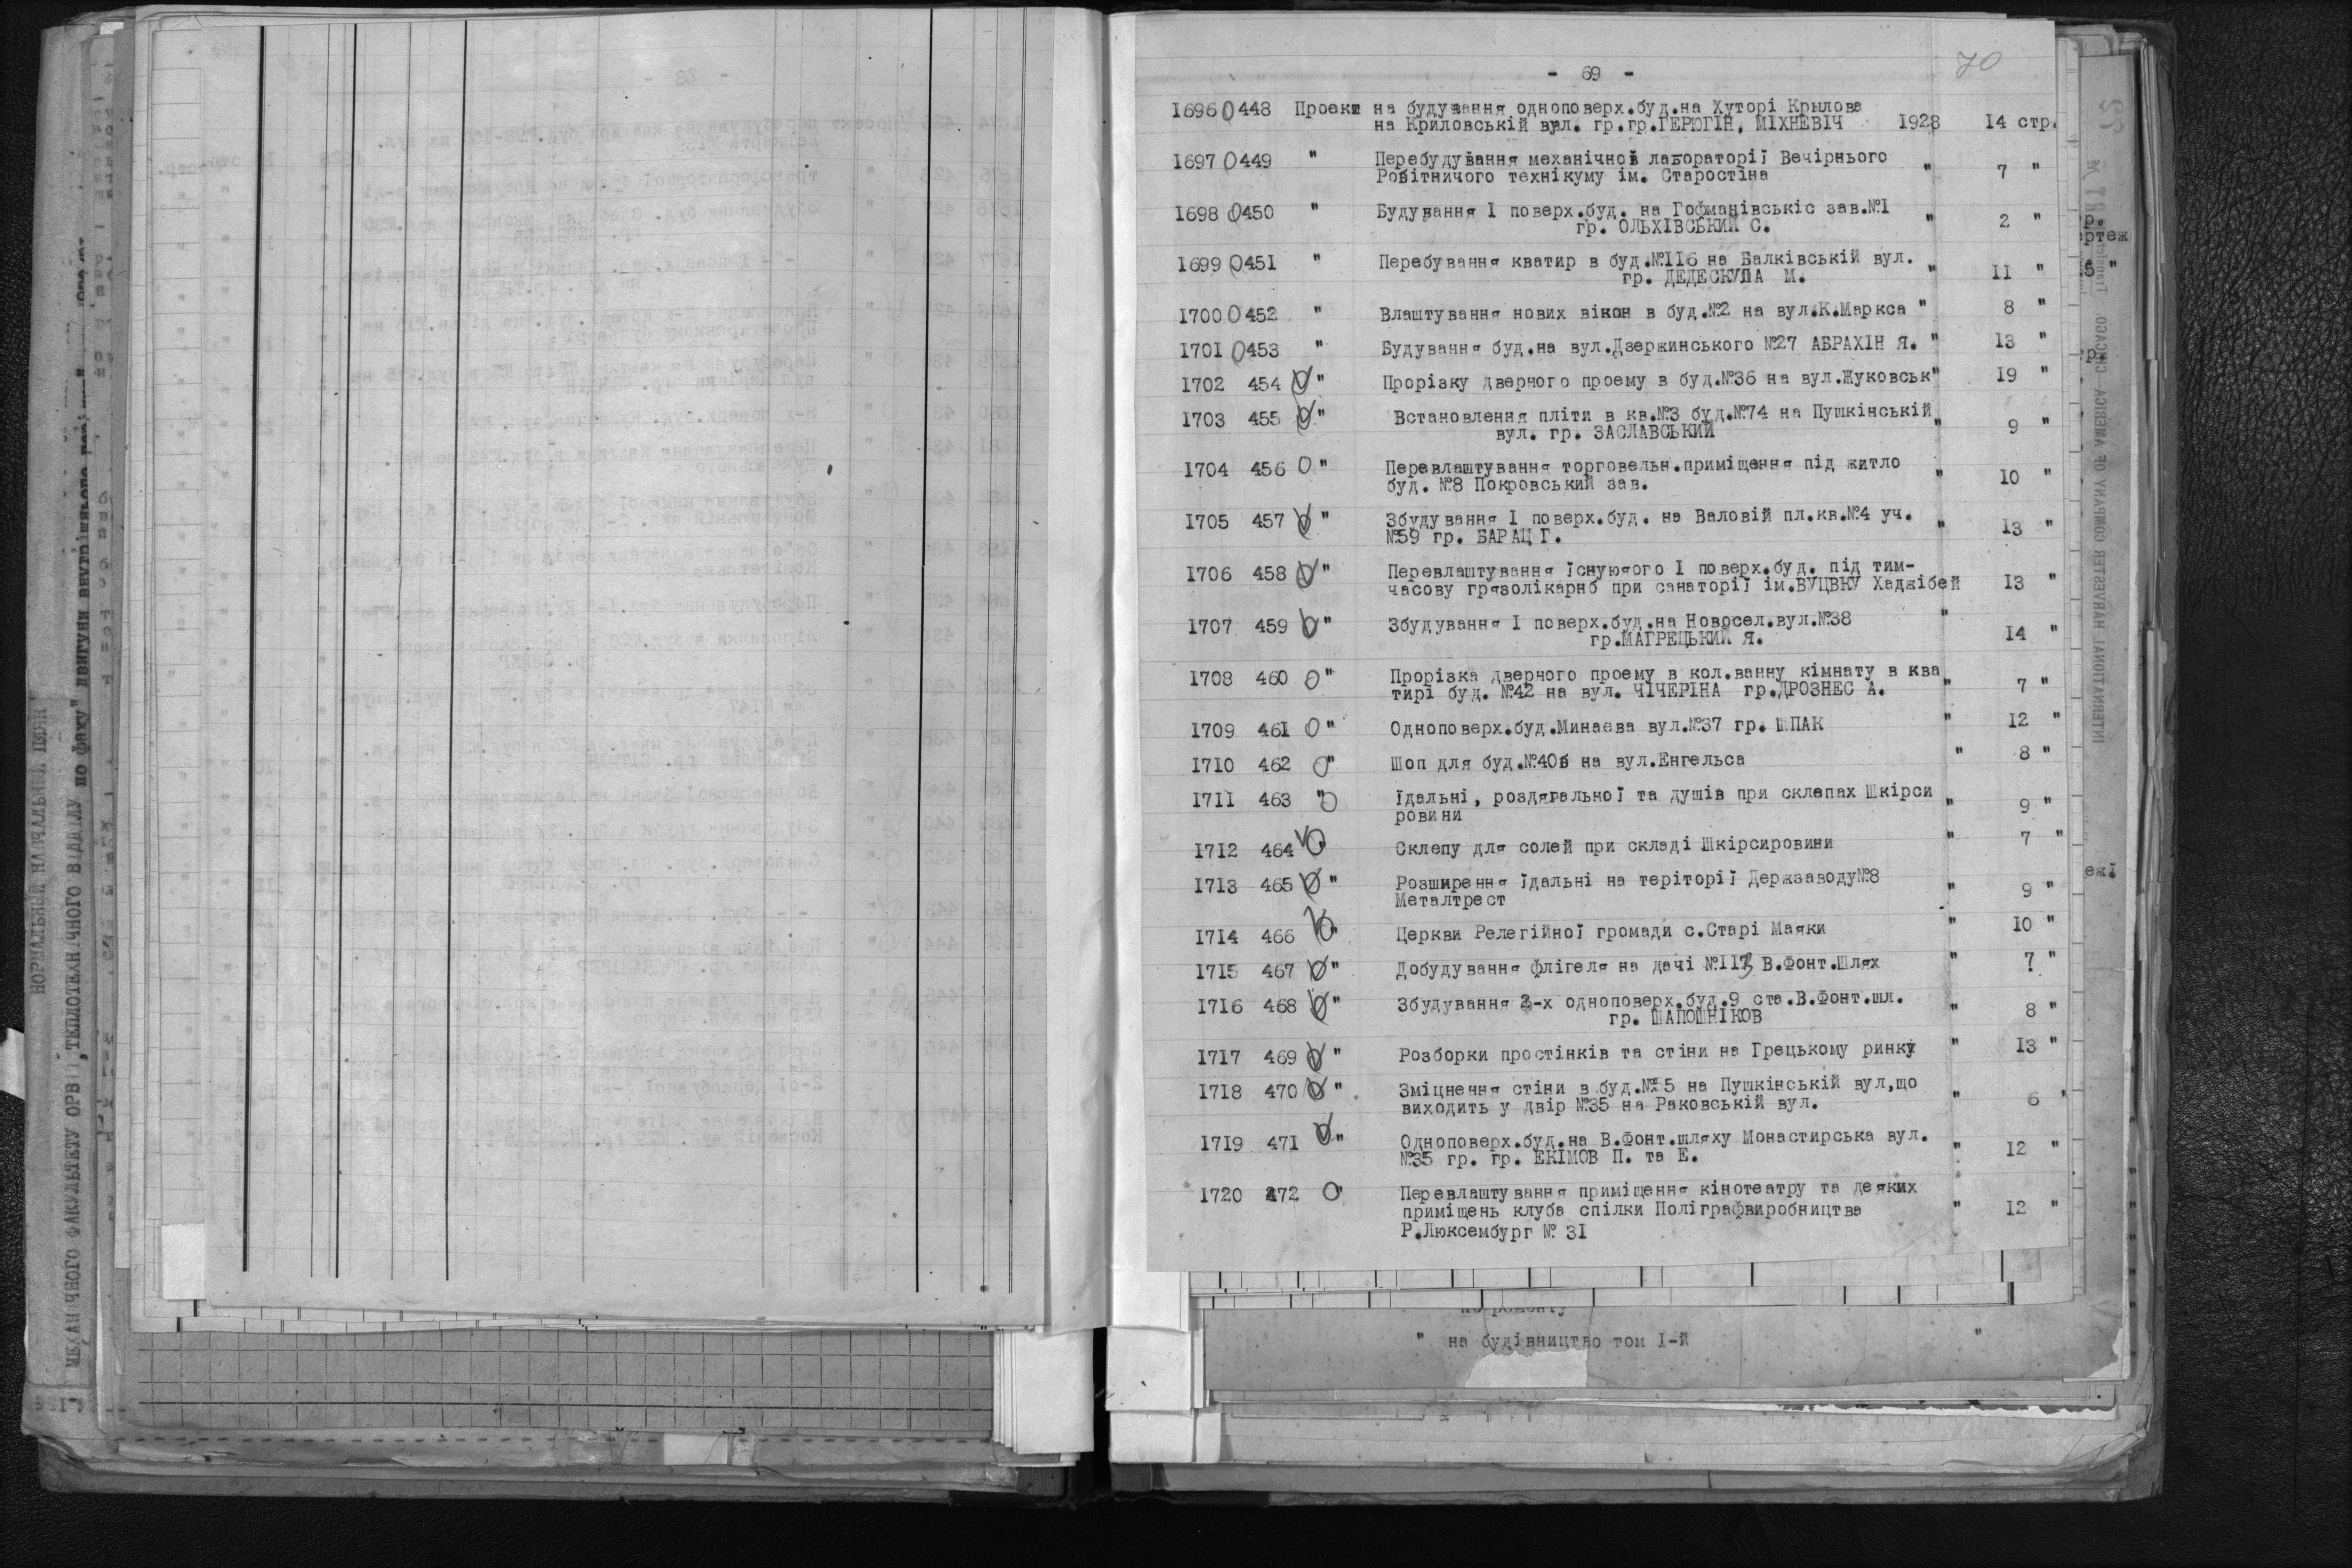 - 69 -
70
1696 0 448 Проект на будування одноповерх.буд.на Хуторі Крылова
на Криловській вул. гр.гр.ГЕРЮГІН, МІХНЕВІЧ 1928 14 стр.
1697 0 449 " Перебудування механічної лабораторії Вечірнього
Робітничого технікуму ім. Старостіна " 7 "
1698 0 450 " Будування I поверх.буд. на Гофманівськіс зав.№I
гр. ОЛЬХІВСЬКИЙ С. " 2 "
1699 0 451 " Перебування кватир в буд.№II6 на Балківській вул.
гр. ДЕДЕСКУЛА М. " II "
1700 0 452 " Влаштування нових вікон в буд.№2 на вул.К.Маркса " 8 "
1701 0 453 " Будування буд.на вул.Дзержинського №27 АБРАХІН Я. " 13 "
1702 454 0 " Прорізку дверного проему в буд.№36 на вул.Жуковськ" 19 "
1703 455 0 " Встановлення пліти в кв.№3 буд.№74 на Пушкінській
вул. гр. ЗАСЛАВСЬКИЙ " 9 "
1704 456 0 " Перевлаштування торговельн.приміщення під житло
буд. №8 Покровський зав. " 10 "
1705 457 0 " Збудування I поверх.буд. на Валовій пл.кв.№4 уч.
№59 гр. БАРАЦ Г. " 13 "
1706 458 0 " Перевлаштування їснуюяого I поверх.буд. під тим-
часову грязолікарнб при санаторії ім.ВУЦВКУ Хаджібей 13 "
1707 459 0 " Збудування I поверх.буд.на Новосел.вул.№38 "
гр.МАГРЕЦЬКИЙ Я. 14 "
1708 460 0 " Прорізка дверного проему в кол.ванну кімнату в ква
тирі буд. №42 на вул. ЧІЧЕРІНА гр.ДРОЗНЕС А. " 7 "
1709 461 0 " Одноповерх.буд.Минаева вул.№37 гр. ШПАК " 12 "
1710 462 0 " Шоп для буд.№40б на вул.Енгельса " 8 "
1711 463 " 0 Їдальні, роздягальної та душів при склепах Шкірси
ровини " 9 "
1712 464 0 Склепу для солей при складі Шкірсировини " 7 "
1713 465 0 " Розширення їдальні на теріторії Держзаводу№8
Металтрест " 9 "
1714 466 0 " Церкви Релегійної громади с.Старі Маяки " 10 "
1715 467 0 " Добудування флігеля на дачі №II3 В.Фонт.Шлях " 7 "
1716 468 0 " Збудування 2-х одноповерх.буд.9 ста.В.Фонт.шл.
гр. ШАПОШНІКОВ " 8 "
1717 469 0 " Розборки простінків та стіни на Грецькому ринку " 13 "
1718 470 0 " Зміцнення стіни в буд.№5 на Пушкінській вул,що
виходить у двір №35 на Раковській вул. " 6 "
1719 471 0 " Одноповерх.буд.на В.Фонт.шляху Монастирська вул.
№35 гр. гр. ЕКІМОВ П. та Е. " 12 "
1720 472 0 " Перевлаштування приміщення кінотеатру та деяких
приміщень клуба спілки Поліграфвиробництва " 12 "
Р.Люксембург № 31
по ремонту
" на будівництво том I-й "
НОРМАЛЬНЫЙ НАВЧАЛЬНЫЙ ПЛЯН
МЕХАНІЧНОГО ФАКУЛЬТЕТУ ОРВ ТЕПЛОТЕХНІЧНОГО ВІДДІЛУ по факу" двигуни внутрішнього
INTERNATIONAL HARVESTER COMPANY OF AMERICA CHICAGO